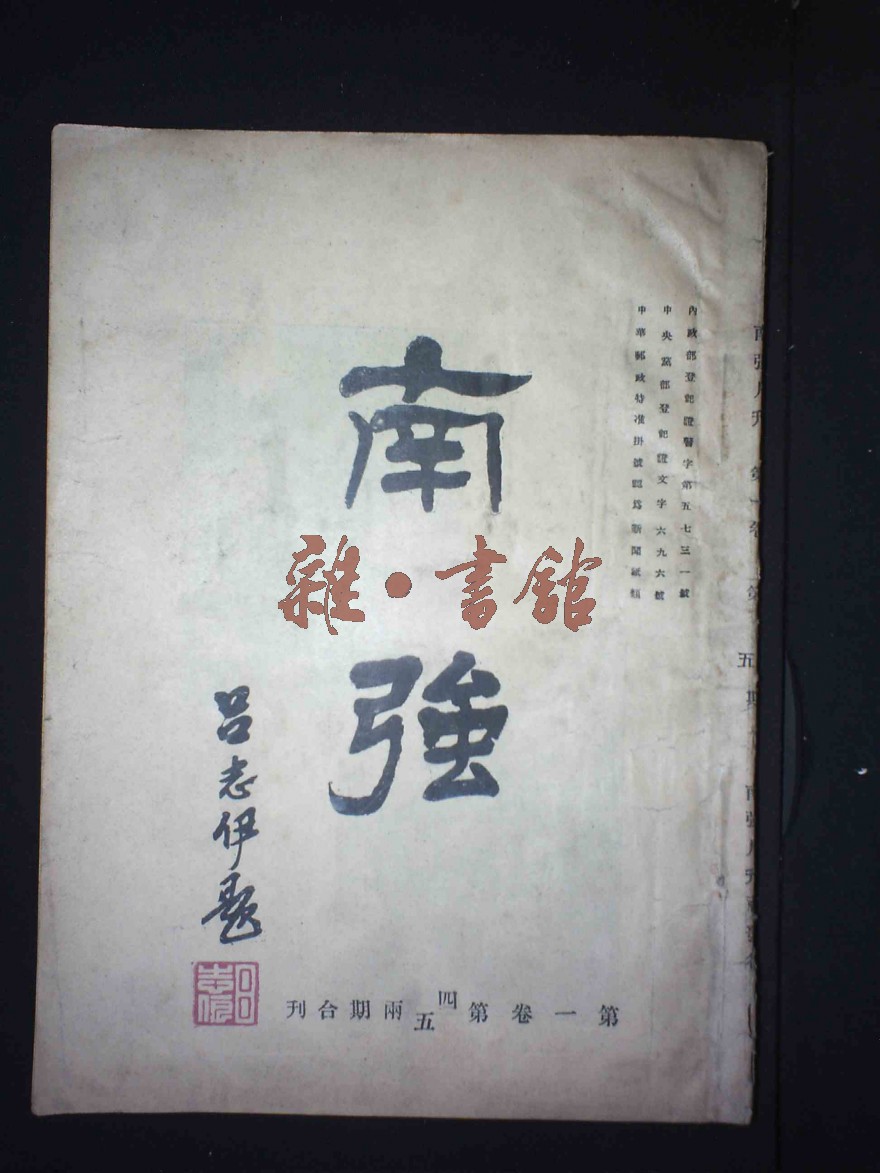 內政部登記證警字第五七三一號
中央黨部登記證文字六九六號
中華郵政特准掛號認爲新聞紙類
南強
雜・書館
呂志伊題
呂志伊
第一卷第四五兩期合刊
南強月刊 第一卷 第 五期 南強月刊